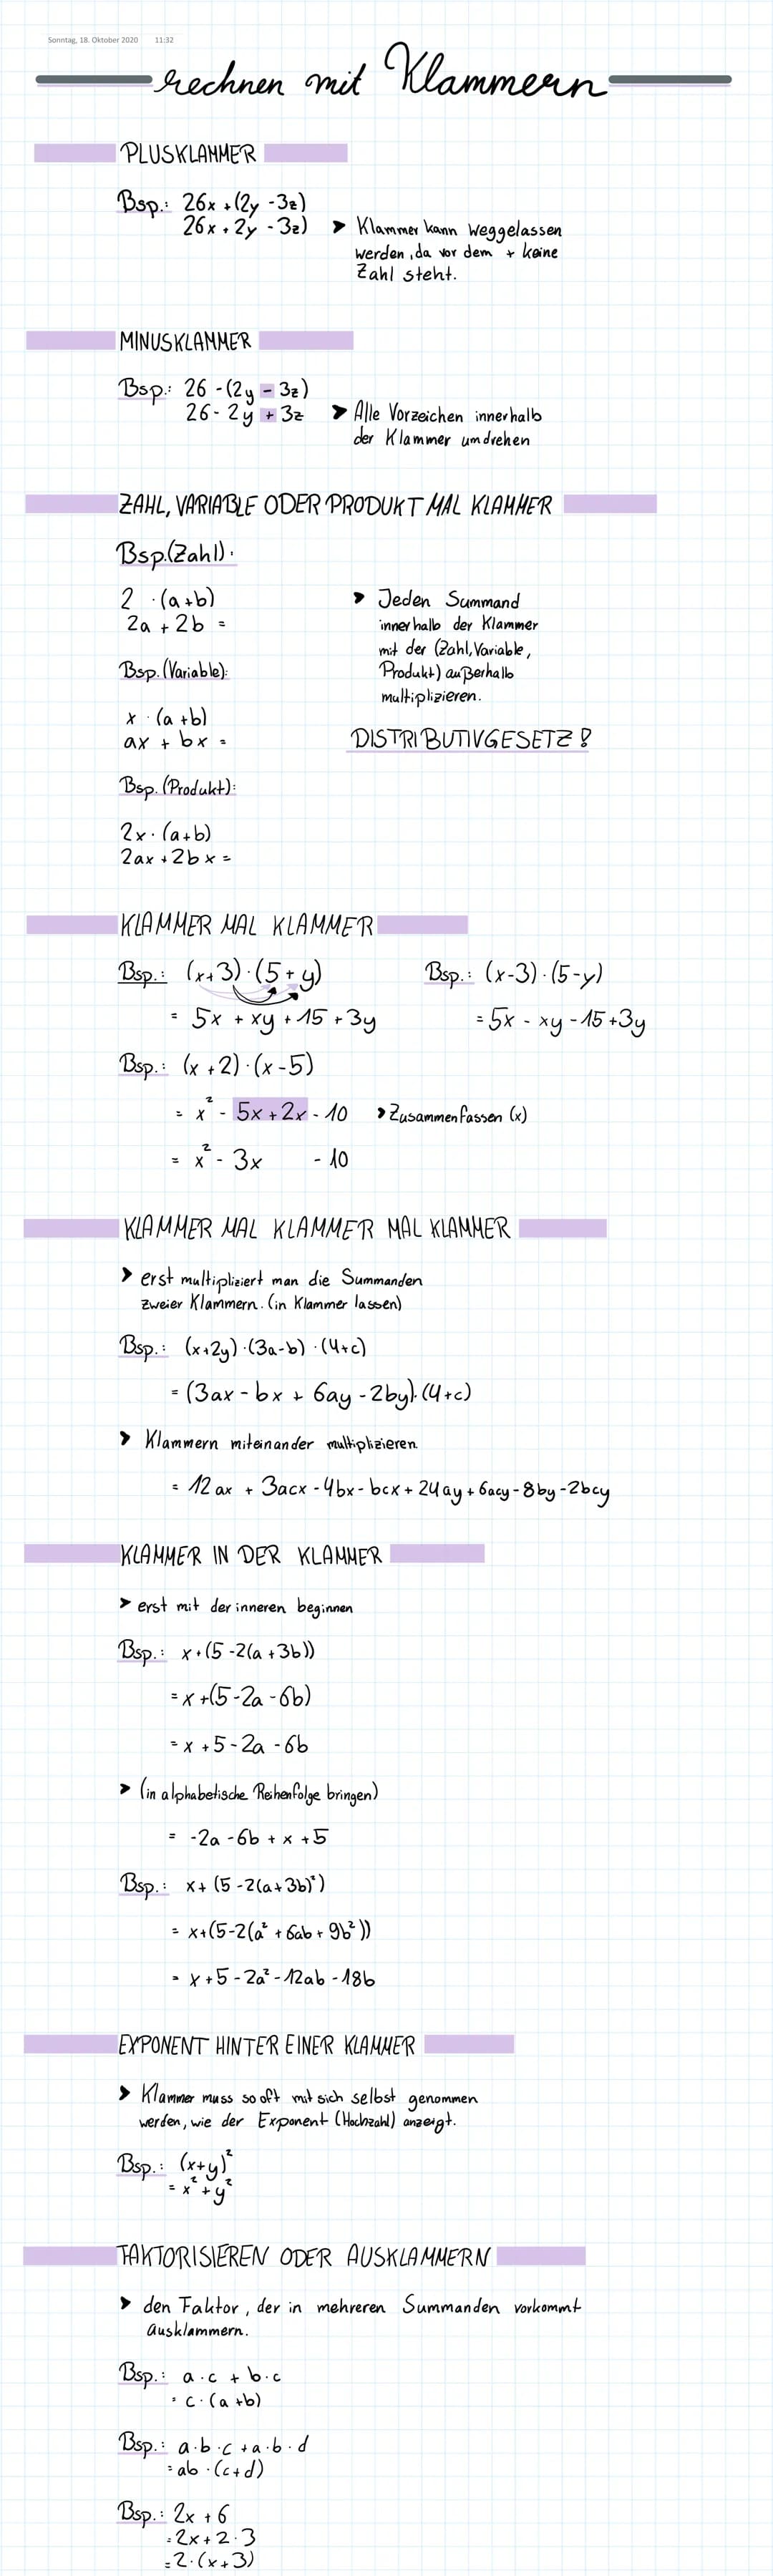 Sonntag, 18. Oktober 2020 11:32
rechnen mit Klammern
PLUSKLAMMER
Bsp.: 26x + (2y - 3z)
26x + 2y - 3z) ➤ Klammer kann weggelassen
werden, da vor dem + keine
Zahl steht.
MINUSKLAMMER
Bsp.: 26 - (2y - 3z)
26 - 2y + 3z ➤ Alle Vorzeichen innerhalb
der Klammer umdrehen
ZAHL, VARIABLE ODER PRODUKT MAL KLAMMER
Bsp.(Zahl):
2 · (a+b)
2a + 2b =
Bsp. (Variable):
x · (a+b)
ax + bx =
Bsp. (Produkt):
2x · (a+b)
2ax + 2bx =
➤ Jeden Summand
innerhalb der Klammer
mit der (Zahl, Variable,
Produkt) außerhalb
multiplizieren.
DISTRIBUTIVGESETZ!
KLAMMER MAL KLAMMER
Bsp.: (x+3) · (5+y)
= 5x + xy + 15 + 3y
Bsp.: (x-3) · (5-y)
= 5x - xy - 15 + 3y
Bsp.: (x+2) · (x-5)
= x² - 5x + 2x - 10 ➤ Zusammenfassen (x)
= x² - 3x - 10
KLAMMER MAL KLAMMER MAL KLAMMER
➤ erst multipliziert man die Summanden
zweier Klammern. (in Klammer lassen)
Bsp.: (x+2y) · (3a-b) · (4+c)
= (3ax - bx + 6ay - 2by) · (4+c)
➤ Klammern miteinander multiplizieren
= 12ax + 3acx - 4bx - bcx + 24ay + 6acy - 8by - 2bcy
KLAMMER IN DER KLAMMER
➤ erst mit der inneren beginnen
Bsp.: x + (5 - 2(a + 3b))
= x + (5 - 2a - 6b)
= x + 5 - 2a - 6b
➤ (in alphabetische Reihenfolge bringen)
= -2a - 6b + x + 5
Bsp.: x + (5 - 2(a + 3b)²)
= x + (5 - 2(a² + 6ab + 9b²))
= x + 5 - 2a² - 12ab - 18b
EXPONENT HINTER EINER KLAMMER
➤ Klammer muss so oft mit sich selbst genommen
werden, wie der Exponent (Hochzahl) anzeigt.
Bsp.: (x+y)²
= x² + y²
FAKTORISIEREN ODER AUSKLAMMERN
➤ den Faktor, der in mehreren Summanden vorkommt
ausklammern.
Bsp.: a · c + b · c
= c · (a + b)
Bsp.: a · b · c + a · b · d
= ab · (c+d)
Bsp.: 2x + 6
= 2x + 2 · 3
= 2 · (x+3)